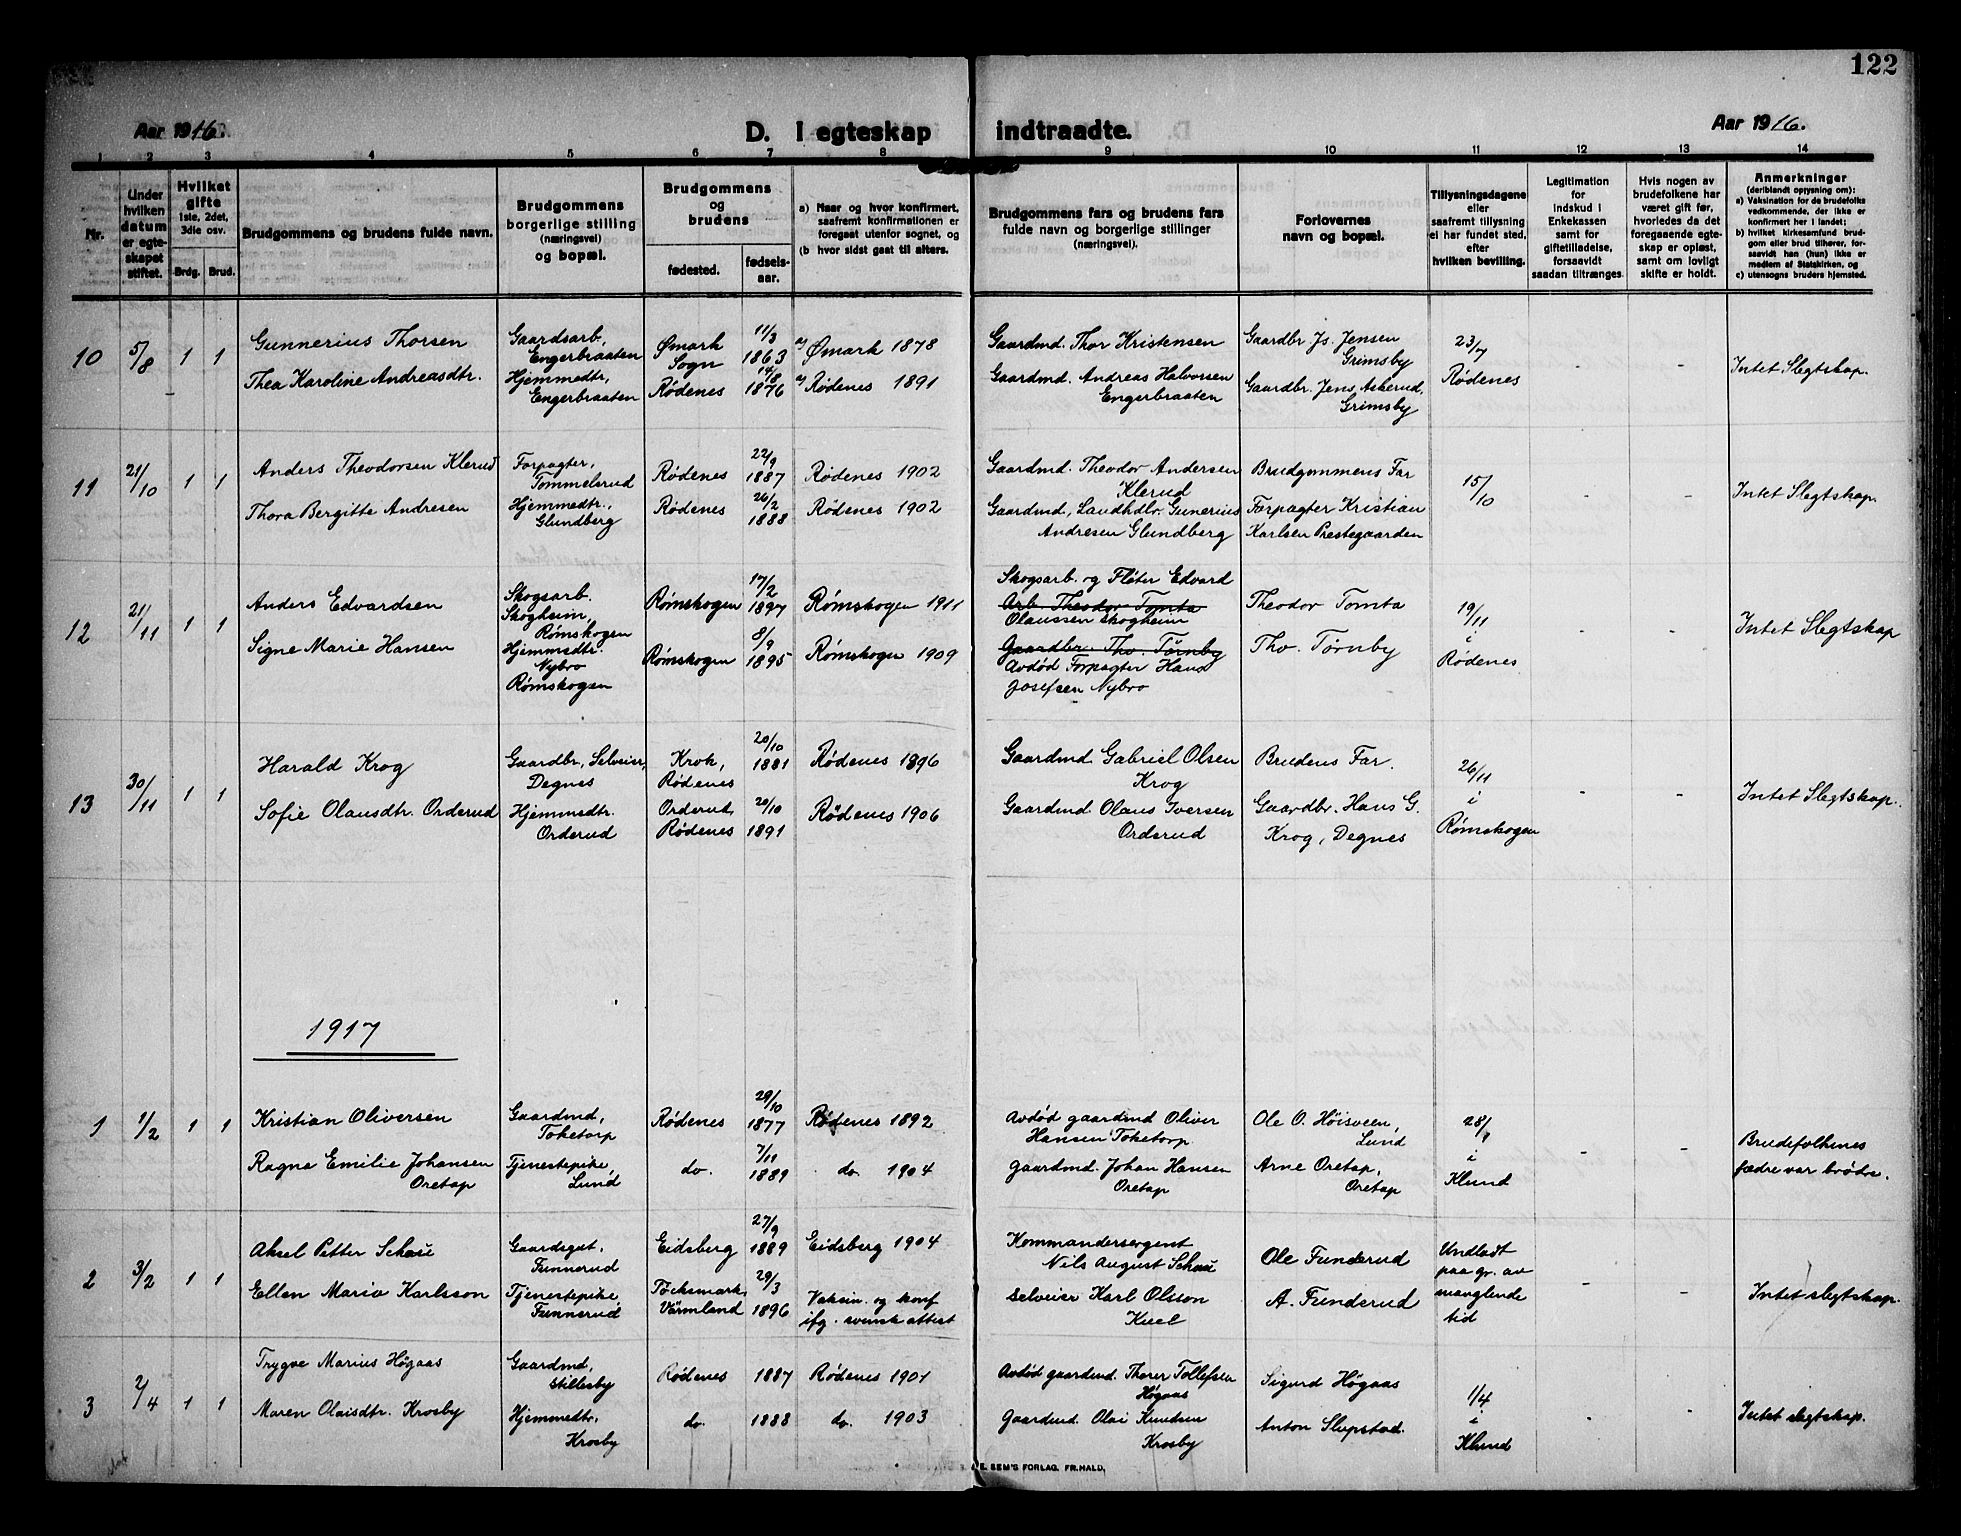 122
Aar 1916.
D. I egteskap indtraadte.
Aar 1916.
1 2 3 4 5 6 7 8 9 10 11 12 13 14
Nr.
Under
hvilken
datum
er egte-
skapet
stiftet.
Hvilket
gifte
1ste, 2det,
3die osv.
Brdg. Brud.
Brudgommens og brudens fulde navn.
Brudgommens
borgerlige stilling
(næringsvei)
og bopæl.
Brudgommens
og
brudens
fødested.
fødsels-
aar.
a) Naar og hvor konfirmert,
saafremt konfirmationen er
foregaat utenfor sognet, og
(b hvor sidst gaat til alters.
Brudgommens fars og brudens fars
fulde navn og borgerlige stillinger
(næringsvei).
Forlovernes
navn og bopæl.
Tillysningsdagene
eller
saafremt tillysning
ei har fundet sted,
efter
hvilken bevilling.
Legitimation
for
indskud i
Enkekassen
samt for
giftetilladelse,
forsaavidt
saadan tiltrænges.
Hvis nogen av
brudefolkene har
været gift før,
hvorledes da det
foregaaende egte-
skap er opløst,
samt om lovligt
skifte er holdt.
Anmerkninger
(deriblandt oplysning om):
a) Vaksination for de brudefolks
vedkommende, der ikke er
konfirmert her i landet;
b) hvilket kirkesamfund brud-
gom eller brud tilhører, for-
saavidt han (hun) ikke er
medlem af Statskirken, og
c) utensogns bruders hjemsted.
10 5/8 1 1
Gunnerius Thorsen
Thea Karoline Andreasdtr.
Gaardsarb,
Engerbraaten
Hjemmedtr,
Engerbraaten
Ømark
Sogn
Rødenes
11/3
1863
14/8
1876
a) Ømark 1878
a) Rødenes 1891
Gaardmd. Thor Kristensen
Gaardmd. Andreas Halvorsen
Engerbraaten
Gaardbr Js. Jensen
Grimsby
Gaardbr. Jens Askerud,
Grimsby
23/7
Rødenes
- -
Intet Slegtskap.
11 21/10 1 1
Anders Theodorsen Klerud
Thora Bergitte Andresen
Forpagter,
Tommelsrud
Hjemmedtr.,
Glundberg
Rødenes
Rødenes
22/9
1887
26/2
1888
Rødenes 1902
Rødenes 1902
Gaardmd. Theodor Andersen
Klerud
Gaardmd, Landhdlr. Gunerius
Andresen Glundberg
Brudgommens Far
Forpagter Kristian
Karlsen Prestegaarden
15/10
- -
Intet Slegtskap.
12 21/11 1 1
Anders Edvardsen
Signe Marie Hansen
Skogsarb.
Skogheim,
Rømskogen
Hjemmedtr.
Nybro
Rømskogen
Rømskogen
Rømskogen
17/2
1897
8/9
1895
Rømskogen 1911
Rømskogn 1909
Skogsarb. og Fløter Edvard
Arb. Theodor Tomta
Olaussen Skogheim
Gaardbr. Tho. Tørnby
Avdød Forpagter Hans
Josefsen Nybro
Theodor Tomta
Tho. Tørnby
19/11
i
Rødenes
- -
Intet Slegtskap
13 30/11 1 1
Harald Krog
Sofie Olausdtr. Orderud
Gaardbr, Selveier,
Degnes
Hjemmedtr.
Orderud
Krok,
Rødenes
Orderud,
Rødenes
20/10
1881
20/10
1891
Rødenes 1896
Rødenes 1906
Gaardmd. Gabriel Olsen
Krog
Gaardmd. Olaus Iversen
Orderud
Brudens Far.
Gaardbr. Hans G.
Krog, Degnes
26/11
i
Rømskogen
- -
Intet Slegtskap.
1917
1 1/2 1 1
Kristian Oliversen
Ragna Emilie Johansen
Oretap
Gaardmd,
Toketorp
Tjenestepike,
Lund
Rødenes
do.
29/10
1877
7/11
1889
Rødenes 1892
do 1904
Avdød gaardmd Oliver
Hansen Toketorp
gaardmd. Johan Hansen
Oretap
Ole O. Høisveen,
Lund
Arne Oretap,
Oretap
28/1
i
Klund
- -
Brudefolkenes
fædre var brødre.
2 3/2 1 1
Aksel Petter Schau
Ellen Maria Karlsson
Gaardsgut,
Funnerud
Tjenestepike
Funnerud
Eidsberg
Töcksmark,
Värmland
27/9
1889
29/3
1896
Eidsberg 1904
Vaksin. og konf
ifg. svensk attest
Kommandersergent
Nils August Schau
selveier Karl Olsson
Kuel
Ole Funderud
A. Funderud
Undladt
paa gr. av
manglende
tid
- -
Intet slegtskap.
3 2/4 1 1
Trygve Marius Høgaas
Maren Olaisdtr. Krosby
Gaardmd,
Stillesby
Hjemmedtr,
Krosby
Rødenes
do.
1887
1888
Rødenes 1901
do. 1903
Avdød gaardmd. Thorer Tollefsen
Høgaas
Gaardmd. Olai Knudsen
Krosby
Sigurd Høgaas
Anton Slupstad.
1/4
i
Klund
- -
Intet slegtskap.
E. SEM'S FORLAG. FR.HALD.